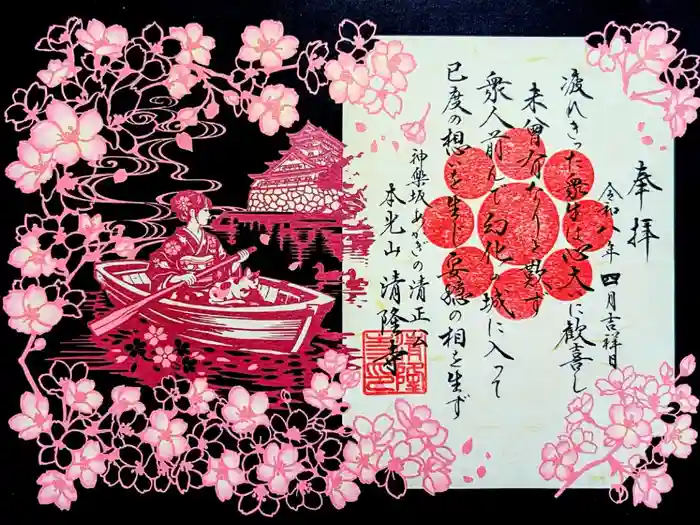 奉拝
令和八年四月吉祥日
疲れきった衆生は心大いに歓喜し
未曾有なりと歎ず
衆人前んで幻化の城に入って
已度の想を生じ安穏の相を生ず
神樂坂あかぎの清正公
本光山 清隆寺